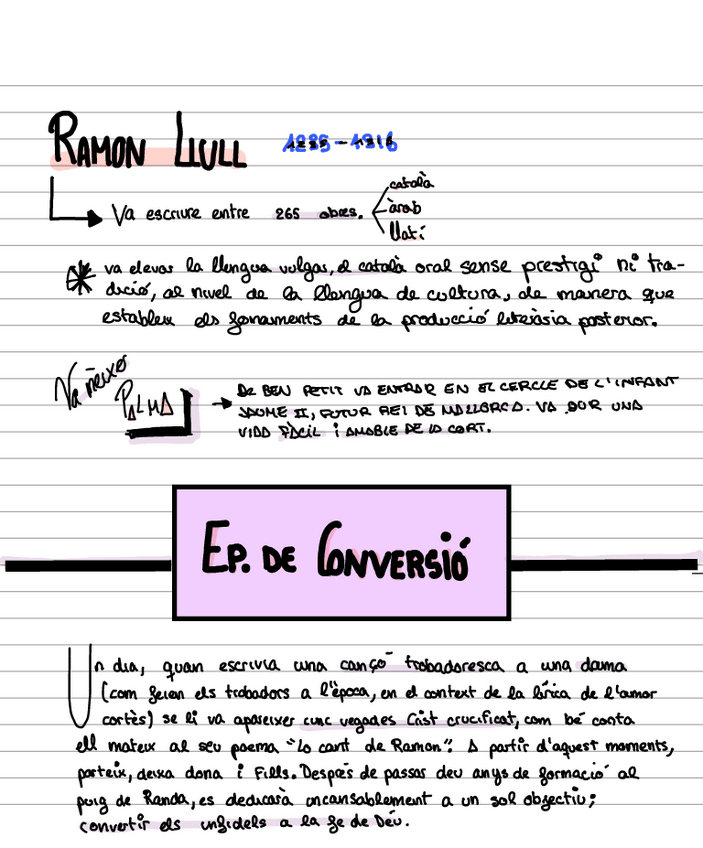 RAMON LLULL 1235-1316
Va escriure entre 265 obres.
català
àrab
llatí
* va elevar la llengua vulgar, el català oral sense prestigi ni tra-
dició, al nivell de la llengua de cultura, de manera que
estableix els fonaments de la producció literària posterior.
Va néixer
PALMA
DE BEN PETIT VA ENTRAR EN EL CERCLE DE L'INFANT
JAUME II, FUTUR REI DE MALLORCA. VA DUR UNA
VIDA FÀCIL I AMABLE DE LA CORT.
EP. DE CONVERSIÓ
Un dia, quan escrivia una cançó trobadoresca a una dama
(com feien els trobadors a l'època, en el context de la lírica de l'amor
cortès) se li va apareixer cinc vegades Crist crucificat, com bé conta
ell mateix al seu poema "Lo cant de Ramon". A partir d'aquest moments,
parteix, deixa dona i fills. Després de passar deu anys de formació al
puig de Randa, es dedicarà incansablement a un sol objectiu;
convertir els infidels a la fe de Déu.